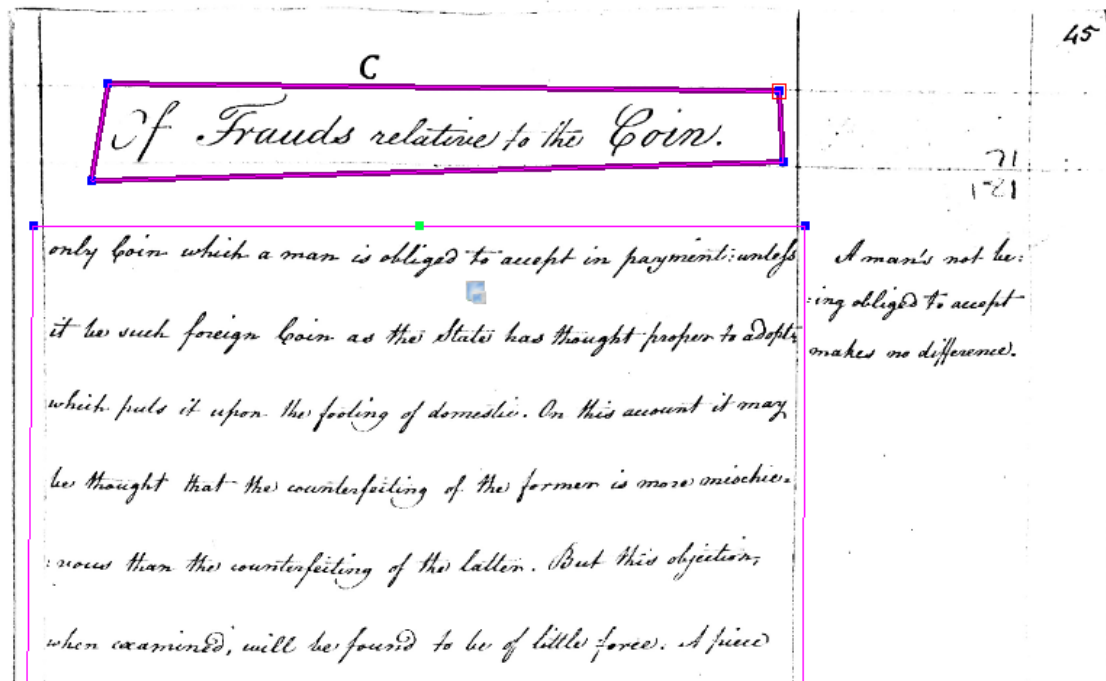 45
C
Of Frauds relative to the Coin.
71
only Coin which a man is obliged to accept in payment: unless
it be such foreign Coin as the State has thought proper to adopt:
which puts it upon the footing of domestic. On this account it may
be thought that the counterfeiting of the former is more mischie=
:vous than the counterfeiting of the latter. But this objection,
when examined, will be found to be of little force. A piece
A man's not be:
:ing obliged to accept
makes no difference.